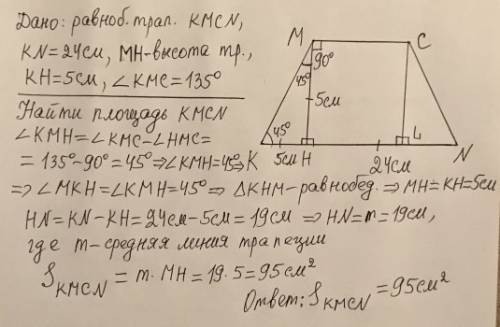 Дано: равноб. трап. KMCN,
KN=24см, MH-высота тр.,
KH=5см, ∠KMC=135°
Найти площадь KMCN
∠KMH=∠KMC-∠HMC=
=135°-90°=45°⇒∠KMH=45°⇒
⇒∠MKH=∠KMH=45°⇒ ΔKHM-равнобед.⇒MH=KH=5см
HN=KN-KH=24см-5см=19см ⇒HN=m=19см,
где m-средняя линия трапеции
S_KMCN = m·MH=19·5=95см²
Ответ: S_KMCN=95см²
M
C
90°
45°
5см
45°
K
5см
H
24см
L
N